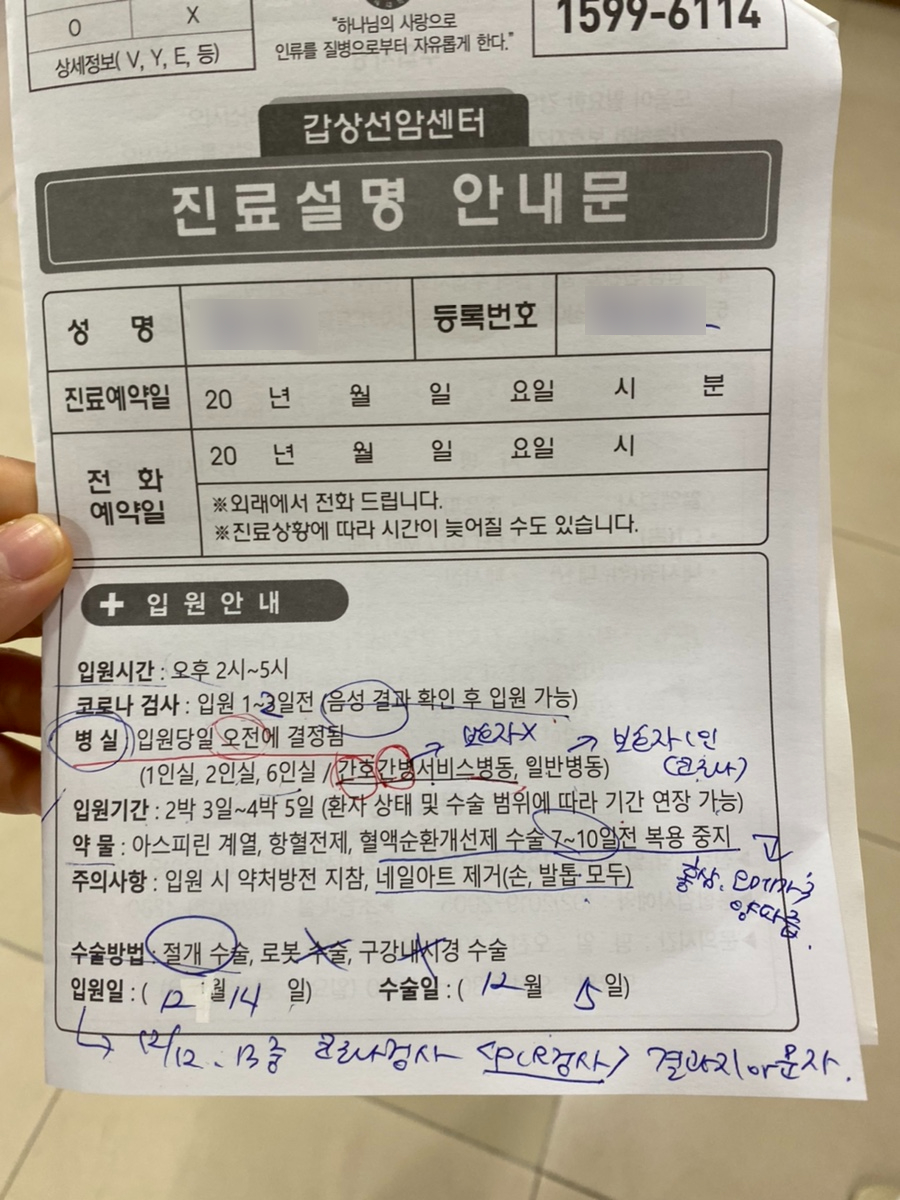 O X
상세정보( V, Y, E, 등)
"하나님의 사랑으로
인류를 질병으로부터 자유롭게 한다."
1599-6114
갑상선암센터
진료설명 안내문
성 명 등록번호
진료예약일 20 년 월 일 요일 시 분
전 화 예약일 20 년 월 일 요일 시
※외래에서 전화 드립니다.
※진료상황에 따라 시간이 늦어질 수도 있습니다.
+ 입 원 안 내
입원시간 : 오후 2시~5시
코로나 검사 : 입원 1~2일전 (음성 결과 확인 후 입원 가능)
병 실 : 입원당일 오전에 결정됨
보호자X 보호자 1인
(1인실, 2인실, 6인실 / 간호간병서비스병동, 일반병동)
(코로나)
입원기간 : 2박 3일~4박 5일 (환자 상태 및 수술 범위에 따라 기간 연장 가능)
약 물 : 아스피린 계열, 항혈전제, 혈액순환개선제 수술 7~10일전 복용 중지
주의사항 : 입원 시 약처방전 지참, 네일아트 제거(손, 발톱 모두)
홍삼, 오메가3
양파즙.
수술방법 : 절개 수술, 로봇 수술, 구강내시경 수술
입원일 : ( 12 월 14 일) 수술일 : ( 12 월 5 일)
12/12. 13 중 코로나검사 <PCR검사> 결과지 or 문자.